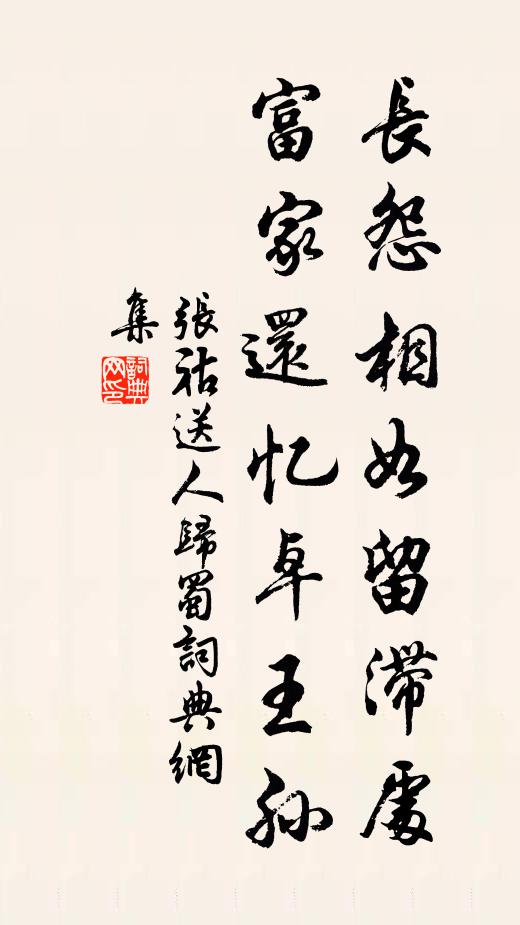 長怨相如留滯處
富家還忆卓王孙
張祜送人歸蜀詞典網
集
詞典網印